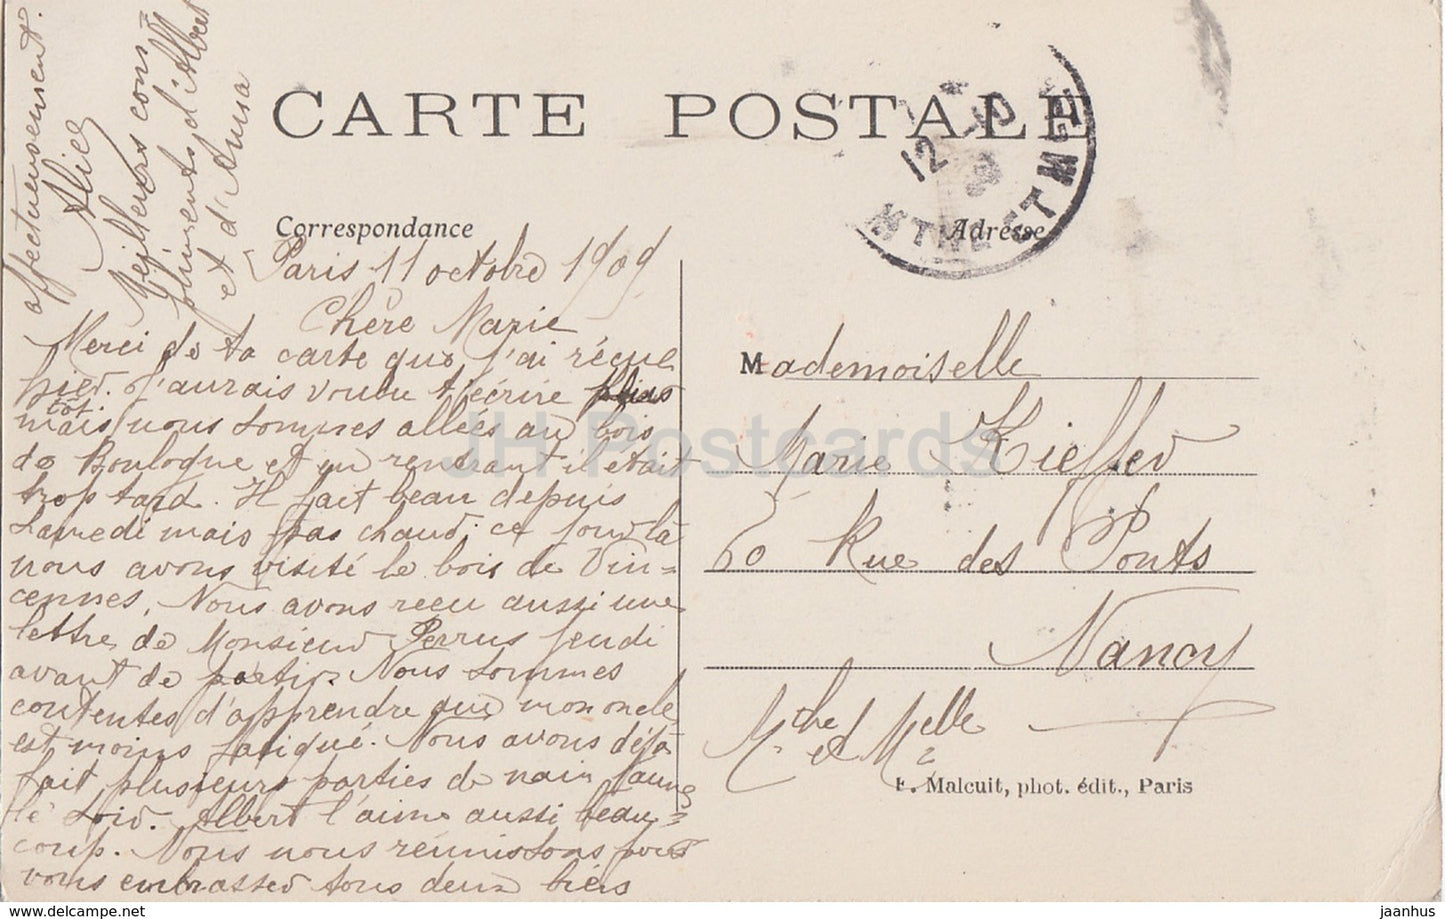 CARTE POSTALE
Correspondance
Adresse
Paris 11 octobre 1909
Chère Marie
Merci de ta carte que j'ai réçue
hier. J'aurais voulu t'écrire plus
tôt
mais nous sommes allées au bois
de Boulogne et en rendrant il était
trop tard. Il fait beau depuis
Samedi mais pas chaud; ce jour là
nous avons visité le bois de Vin=
cennes. Nous avons reçu aussi une
lettre de Monsieur Perrus Jeudi
avant de partir. Nous sommes
contentes d'apprendre que mon oncle
est moins fatigué. Nous avons déjà
fait plusieurs parties de nain Jaune
le soir. Albert l'aime aussi beau=
coup. Nous nous réunissons pour
vous embrasser tous deux biens
affectueusement.
Alice
Meilleurs com=
pliments d'Albert
et d'Anna
Mademoiselle
Marie Kieffer
60 Rue des Ponts
Nancy
Mthe et Melle
F. Malcuit, phot. édit., Paris
12 -10
MTHE ET M
JH Postcards
delcampe.net
jaanhus